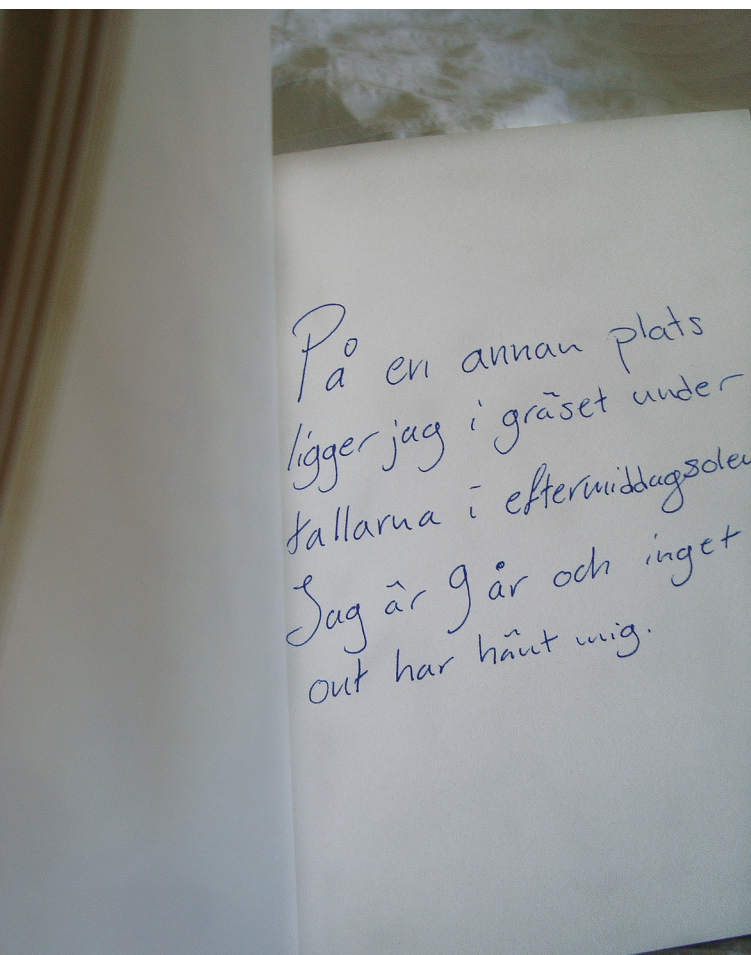 På en annan plats
ligger jag i gräset under
tallarna i eftermiddagsolen
Jag är 9 år och inget
ont har hänt mig.